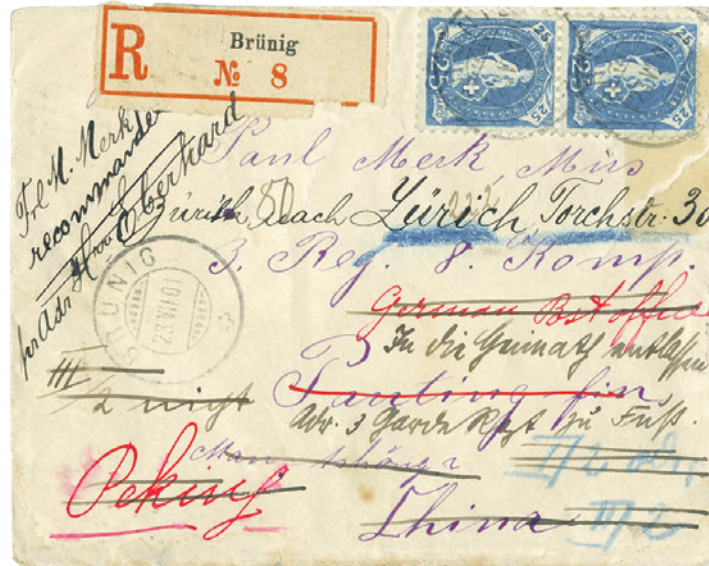 R Brünig
№ 8
25 25
25 25
Frl M. Merk
recommandé
pr Adr Hrn Eberhard
Paul Merk, Mus
Zürich, nach Zürich, Torchstr: 30
3. Reg. 8. Komp.
German Post office
In die Heimath entlassen
Pauting fu
Adr. 3 Garde Regt zu Fuß.
III
/2 nicht
Peking
China
III/2
BRÜNIG